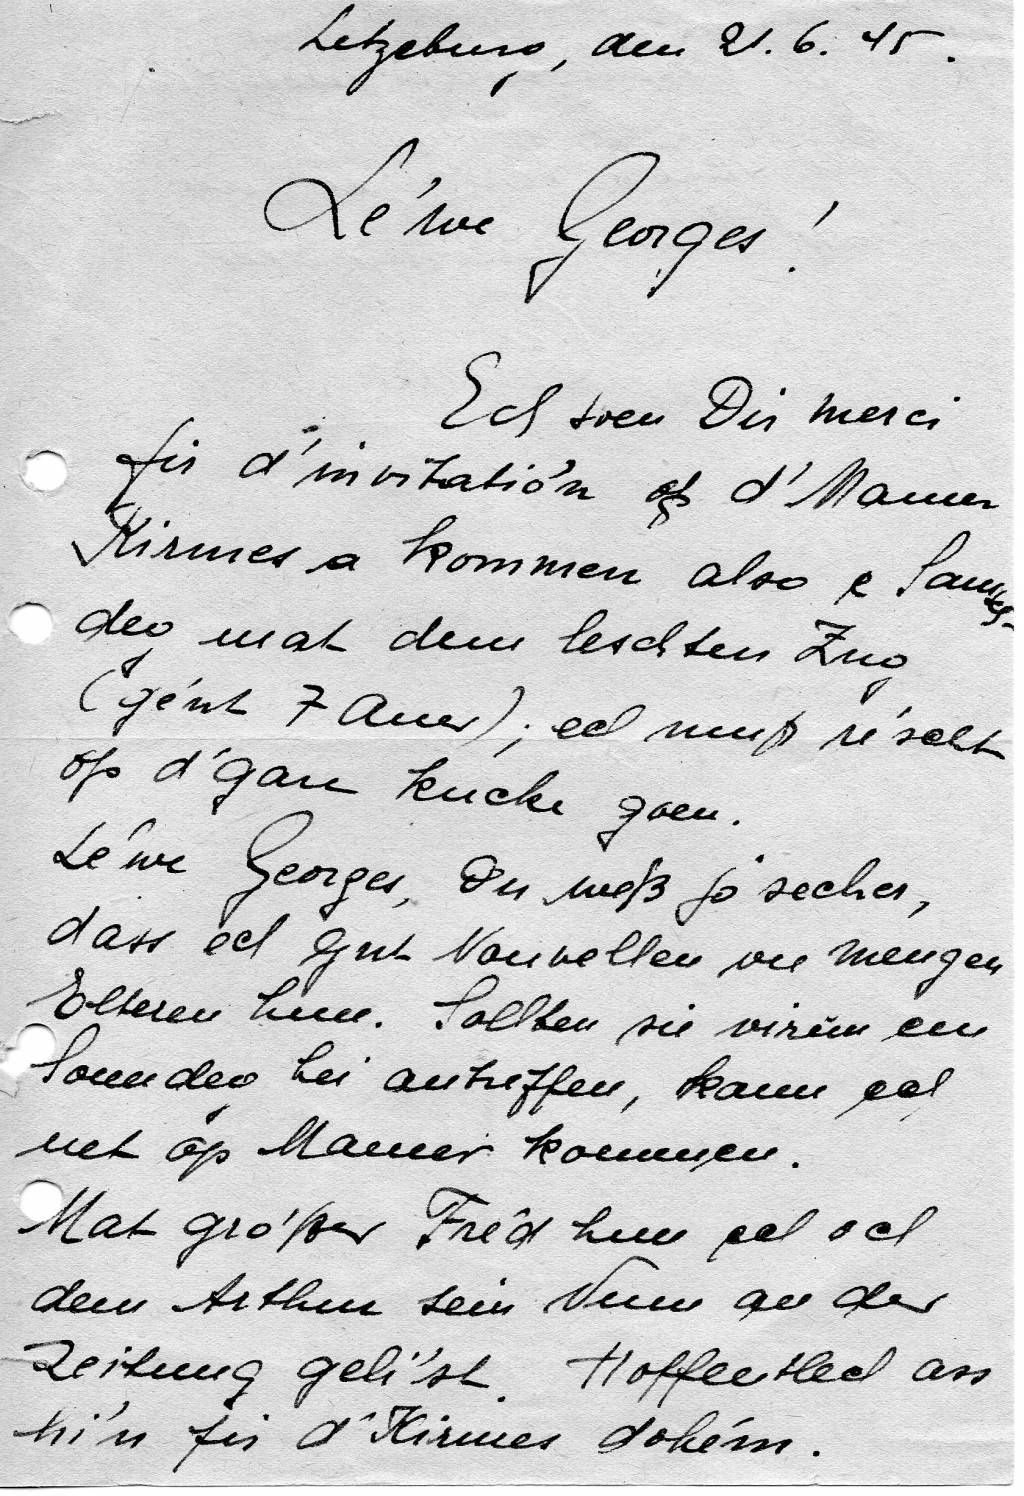 Letzeburg, den 21. 6. 45.
Le'we Georges!
Ech soen Dir merci
fir d'invitatio'n op d'Mamer
Kirmes a kommen also e Sams-
deg mat dem leschten Zug
(ge'nt 7 Auer); ech muß ri'scht
op d'gare kucke goen.
Le'we Georges, Du weß jo secher,
dass ech gut Nouvellen vu mengen
Elteren hun. Sollten sie virum en
Sonndeg hei antreffen, kann ech
net op Mamer kommen.
Mat gro'ßer Fréd hun ech och
dem Arthur sein Numm an der
Zeitung geli'st. Hoffentlech ass
hi'n fir d'Kirmes dohém.